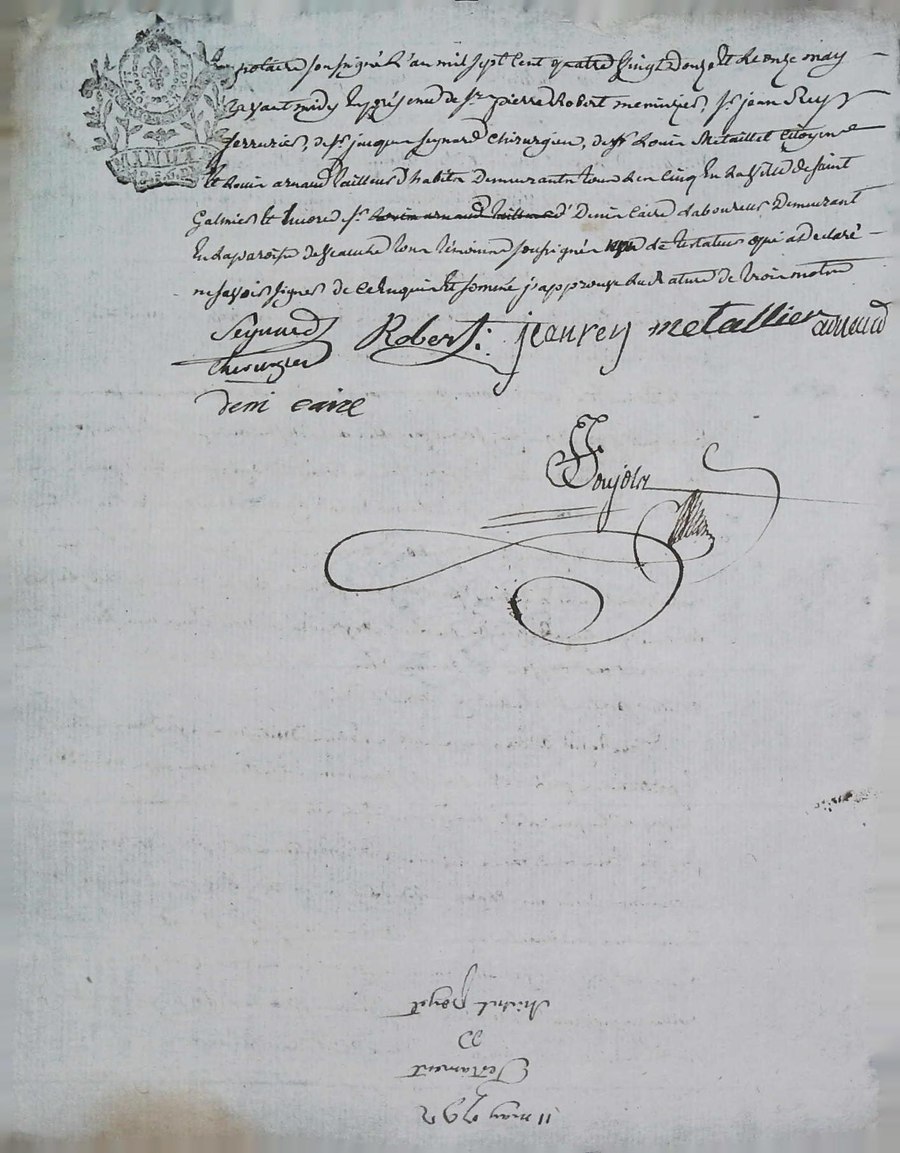 notaire soussigné l'an mil sept cent quatre vingt douze et le onze may
avant midy en présence de sr pierre Robert menuizier, sr jean Rey
serrurier, de sr jacque seynard chirurgien, de sr Louis Metaillet Citoyen
et Louis arnaud tailleur d'habits demeurants tous les cinq en la ville de saint
Galmier et encore sr Louis arnaud tailleur d' Denis Caire laboureur demeurant
en la paroisse de tous témoins soussignés non le testateur qui a declaré
ne savoir signer de ce enquis et sommé j'approuve la Rature de trois mots
Seynard Robert jean rey metallier arnaud
chirurgien
deni caire
Soujols
MINUT
11 may 1792
Testament
de
Michel poyet